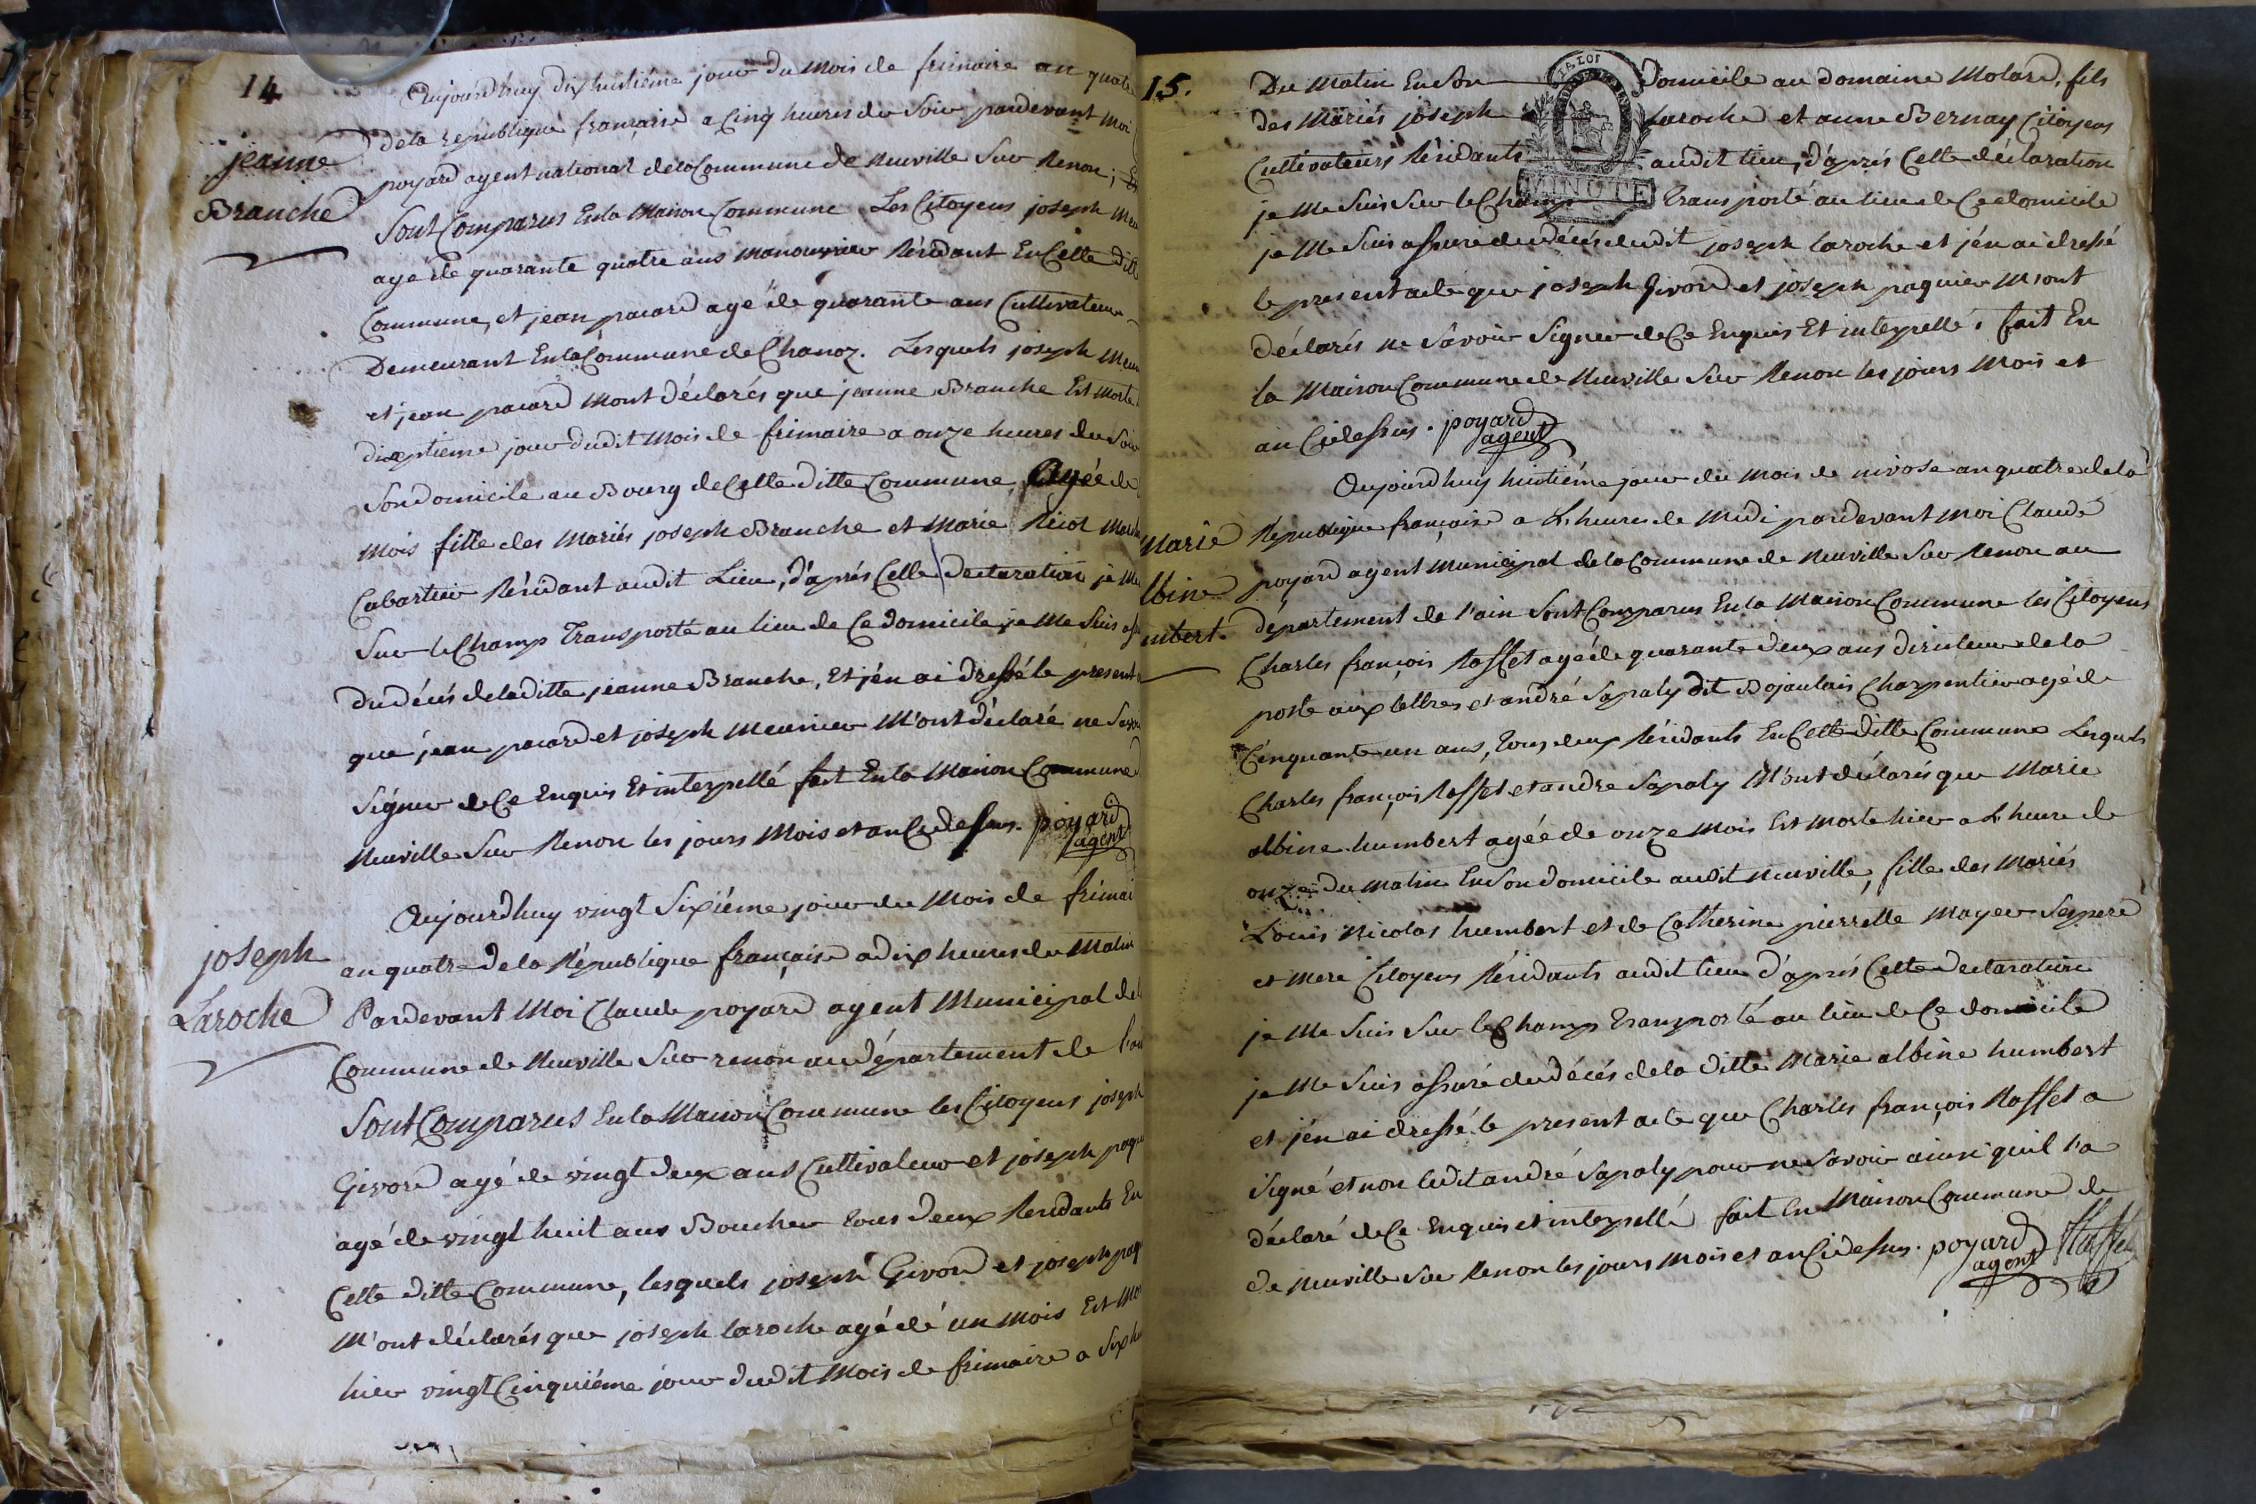 14
Aujourdhuy dix huitiéme jour du mois de frimaire an quatr
de la republique française a Cinq heures du Soir pardevant moi
jeanne
Branche
poyard agent national de la Commune de Neuville Sur Renon;
Sont Comparus En la Maison Commune Les Citoyens joseph Meu
agé de quarante quatre ans Manouvrier Résidant En Cette ditte
Commune, et jean pacard agé de quarante ans Cultivateur
Demeurant En la Commune de Chanoz. Lesquels joseph Meun
et jean pacard Mont déclarés que jeanne Branche Est Morte
dixseptieme jour dudit Mois de frimaire a onze heures du Soir
Son domicile au Bourg de Cette ditte Commune, Agée de
Mois fille des Mariés joseph Branche et Marie
Cabartier Résidant audit Lieu, d'aprés Cette declaration je Me
Sur le Champ Transporté au lieu de Ce domicile, je Me Suis ass
du décés de laditte jeanne Branche, Et j'én ai dressé le present
que jean pacard et joseph Meunier M'ont déclaré ne Savoi
Signer de Ce Enquis Et interpellé fait En la Maison Commune
Neuville Sur Renon les jours Mois et an Cidessus. poyard
agent
Aujourdhuy vingt Sixiéme jour du Mois de frimai
joseph
Laroche
an quatre de la République française a dix heures du Matin
Pardevant Moi Claude poyard agent Municipal de l
Commune de Neuville Sur renon au département de l'ai
Sont Comparus En la Maison Commune les Citoyens joseph
Givord agé de vingt deux ans Cultivateur et joseph paqu
agé de vingt huit ans Boucher tous deux Residants En
Cette ditte Commune, lesquels joseph Givord et joseph paq
M'ont déclarés que joseph laroche agé dé un Mois Est Mor
hier vingt Cinquiéme jour dudit Mois de frimaire a Six he
15.
Du Matin En Son domicile au domaine Molard, fils
des Mariés joseph laroche et anne Bernay Citoyens
Cultivateurs Résidants audit lieu, d'aprés Cette déclaration
je Me Suis Sur le Champ Transporté au lieu de Ce domicile
LA LOI
MINUTE
je Me Suis assuré du décés dudit joseph laroche et j'én ai dressé
le present acte que joseph Givord et joseph paquier M'ont
déclarés ne Savoir Signer de Ce Enquis Et interpellé. fait En
la Maison Commune de Neuville Sur Renon les jours Mois et
an Cidessus. poyard
agent
Aujourdhuy huitiéme jour du Mois de nivose an quatre de la
Marie
lbine
umbert
République française a L'heure de Midi pardevant Moi Claude
poyard agent Municipal de la Commune de Neuville Sur Renon au
département de l'ain Sont Comparus En la Maison Commune les Citoyens
Charles françois Raffet agé de quarante deux ans directeur de la
poste aux lettres et andré Sapaly dit Bojaulais Charpentier agé de
Cinquante un ans, Tous deux Résidants En Cette ditte Commune Lesquels
Charles françois Raffet et andre Sapaly M'ont déclarés que Marie
albine humbert agée de onze Mois Est Morte hier a L'heure de
onze du Matin En Son domicile audit Neuville, fille des Mariés
Louis Nicolas humbert et de Catherine pierrette Mayer Ses pere
et Mere Citoyens Résidants audit lieu d'aprés Cette declaration
je Me Suis Sur le Champ Transporté au lieu de Ce domicile
je Me Suis assuré du décés de la ditte Marie albine humbert
et j'én ai dressé le present acte que Charles françois Raffet a
Signé et non ledit andré Sapaly pour ne Savoir ainsi quil l'a
déclaré de Ce Enquis et interpellé fait En Maison Commune de
de Neuville Sur Renon les jours Mois et an Cidessus. poyard Raffet
agent